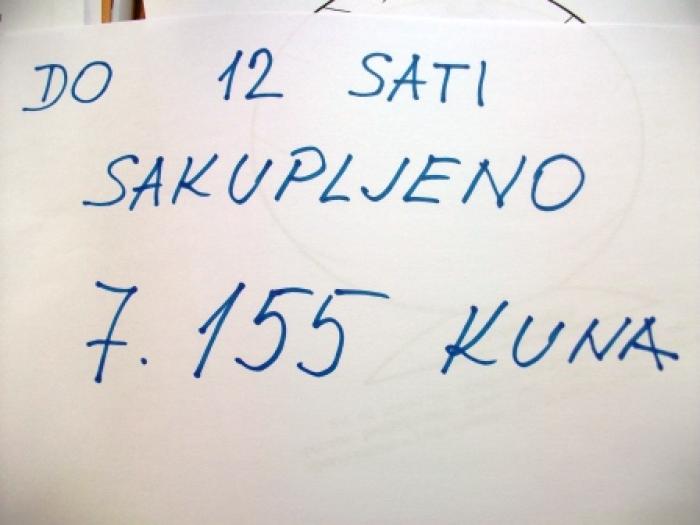 DO 12 SATI
SAKUPLJENO
7.155 KUNA